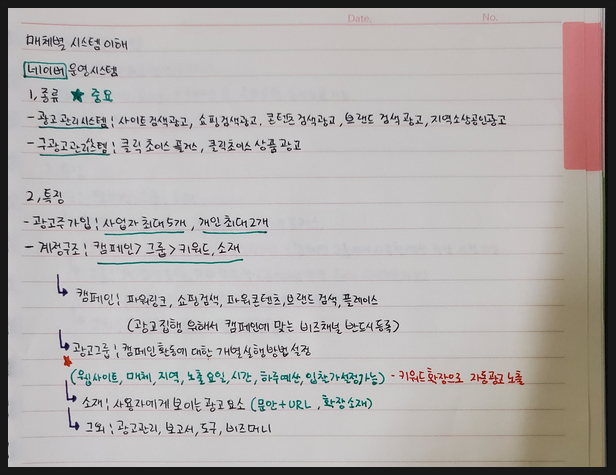 Date.
No.
매체별 시스템 이해
네이버 운영시스템
1. 종류 ★ 중요
- 광고관리시스템 : 사이트검색광고, 쇼핑검색광고, 콘텐츠검색광고, 브랜드 검색광고, 지역소상공인광고
- 구광고관리시스템 : 클릭초이스 플러스, 클릭초이스 상품광고
2. 특징
- 광고주가입 : 사업자 최대 5개, 개인 최대 2개
- 계정구조 : 캠페인 > 그룹 > 키워드, 소재
캠페인 : 파워링크, 쇼핑검색, 파워콘텐츠, 브랜드 검색, 플레이스
(광고집행 위해서 캠페인에 맞는 비즈채널 반드시 등록)
★ 광고그룹 : 캠페인 활동에 대한 개별 실행방법 설정
(웹사이트, 매체, 지역, 노출요일, 시간, 하루예산, 입찰가 설정가능) - 키워드확장으로 자동광고 노출
소재 : 사용자에게 보이는 광고요소 (문안+URL, 확장소재)
그외 : 광고관리, 보고서, 도구, 비즈머니